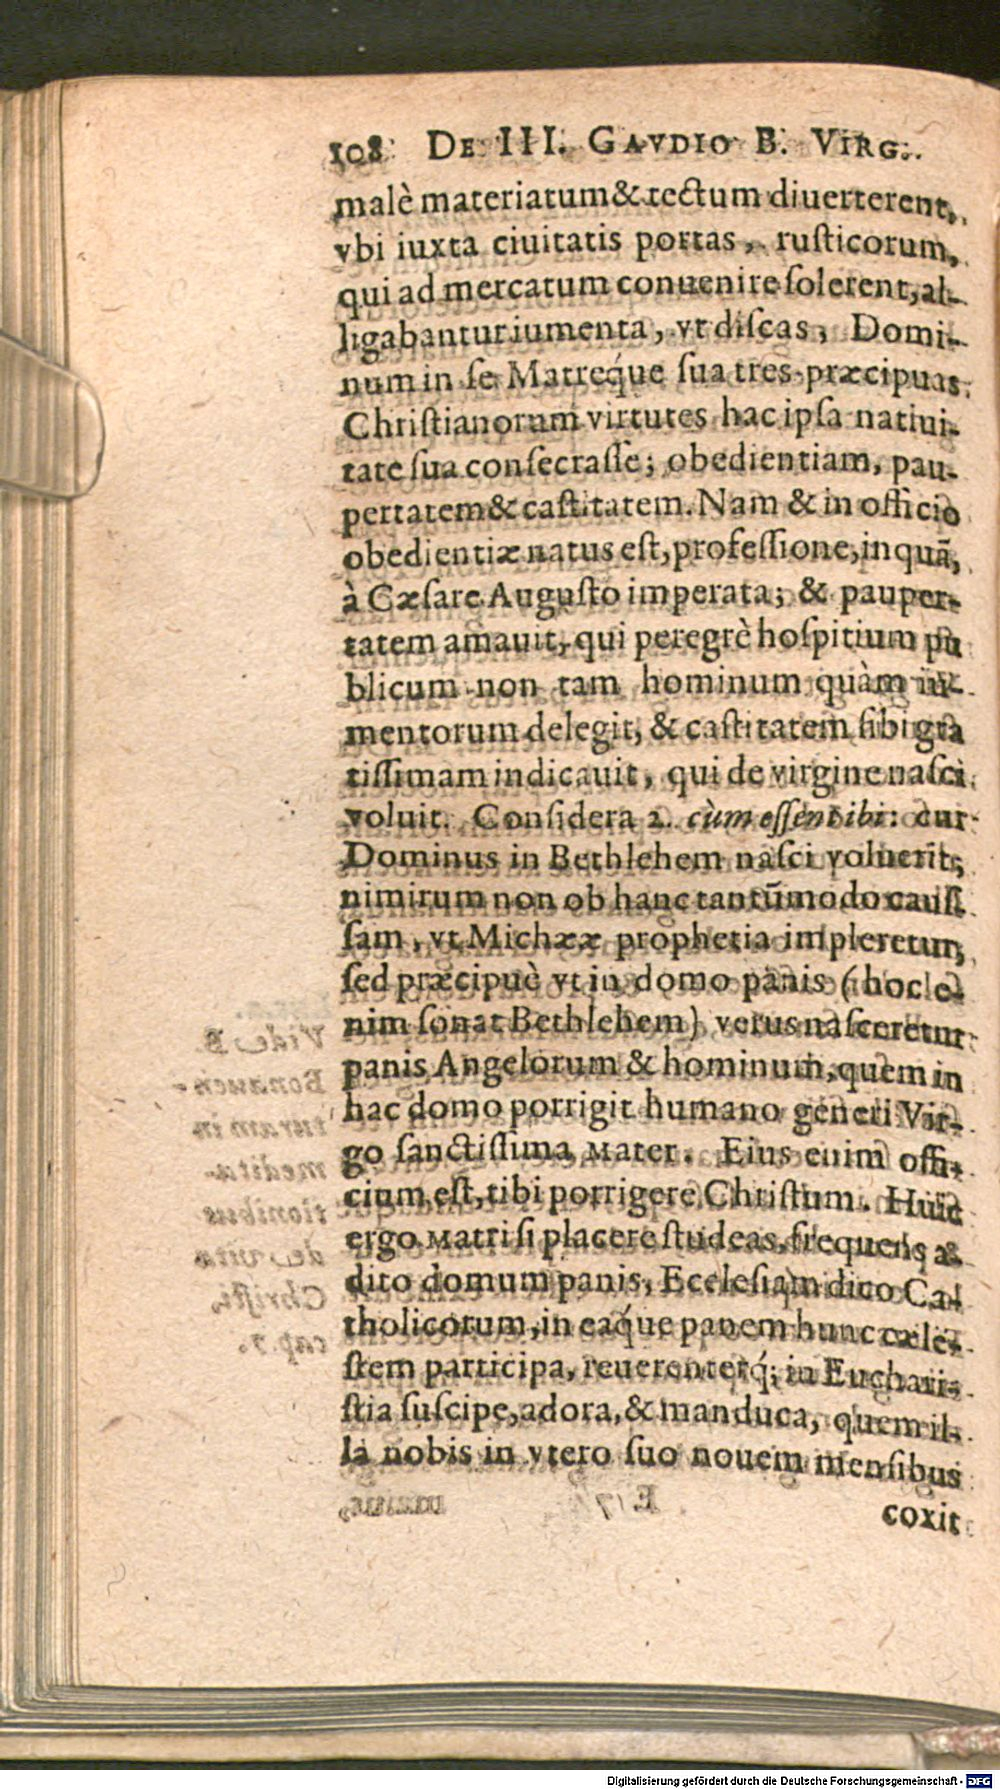 108 DE III. GAVDIO B. VIRG.
malè materiatum & tectum diuerterent,
vbi iuxta ciuitatis portas, rusticorum,
qui ad mercatum conuenire solerent, al-
ligabantur iumenta, vt discas, Domi-
num in se Matreq́ue sua tres præcipuas
Christianorum virtutes hac ipsa natiui-
tate sua consecrasse; obedientiam, pau-
pertatem & castitatem. Nam & in officio
obedientiæ natus est, professione, inquã,
à Cæsare Augusto imperata; & pauper-
tatem amauit, qui peregrè hospitium pu
blicum non tam hominum quàm iu-
mentorum delegit, & castitatem sibi gra
tissimam indicauit, qui de virgine nasci
voluit. Considera 2. cùm essent ibi: cur
Dominus in Bethlehem nasci voluerit;
nimirum non ob hanc tantũmodo caus-
sam, vt Michææ prophetia impleretur,
sed præcipuè vt in domo panis (hoc e-
nim sonat Bethlehem) verus nasceretur
panis Angelorum & hominum, quem in
hac domo porrigit humano generi Vir-
go sanctissima MATER. Eius enim offi-
cium est, tibi porrigere Christum. Huic
ergo MATRI si placere studeas, frequens a-
dito domum panis, Ecclesiam dico Ca-
tholicorum, in eaq́ue panem hunc cæle-
stem participa, reuerenterq́; in Euchari-
stia suscipe, adora, & manduca, quem il-
la nobis in vtero suo nouem mensibus
coxit
Digitalisierung gefördert durch die Deutsche Forschungsgemeinschaft - DFG